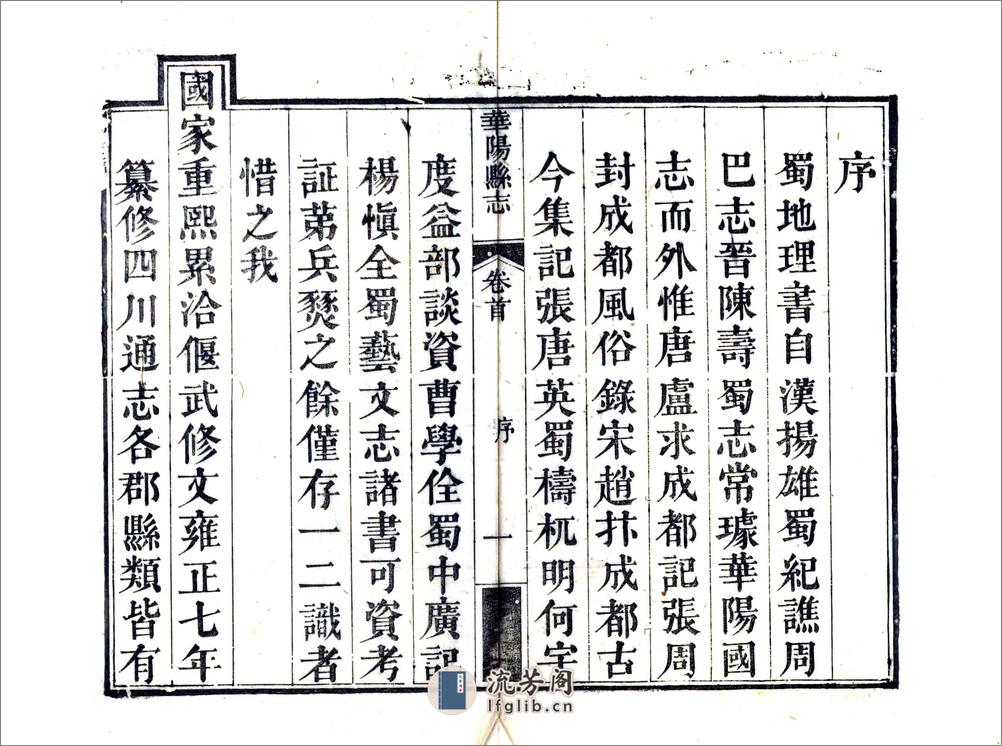 序
蜀地理書自漢揚雄蜀紀譙周
巴志晉陳壽蜀志常璩華陽國
志而外惟唐盧求成都記張周
封成都風俗錄宋趙抃成都古
今集記張唐英蜀檮杌明何宇
華陽縣志
卷首
序
一
度益部談資曹學佺蜀中廣記
楊慎全蜀藝文志諸書可資考
証苐兵燹之餘僅存一二識者
惜之我
國家重熙累洽偃武修文雍正七年
纂修四川通志各郡縣類皆有
流芳阁
lfglib.cn